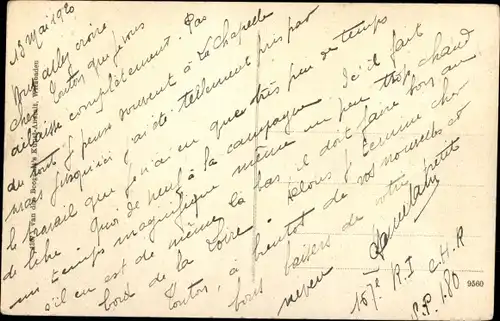 13 Mai 1920
Vous allez croire
cher Tonton que je vous
délaisse complètement. Pas
du tout je pense souvent à la Chapelle
mais jusqu'ici j'ai été tellement pris par
le travail que je n'ai eu que très peu de temps
de libre. Quoi de neuf à la campagne. Ici il fait
un temps magnifique même un peu trop chaud
s'il en est de même là bas il doit faire bon au
bord de la Loire. Allons je termine cher
Tonton, à bientôt de vos nouvelles et
bons baisers de votre petit
neveu
167e R.I. C.H.R
S.P. 180
9560